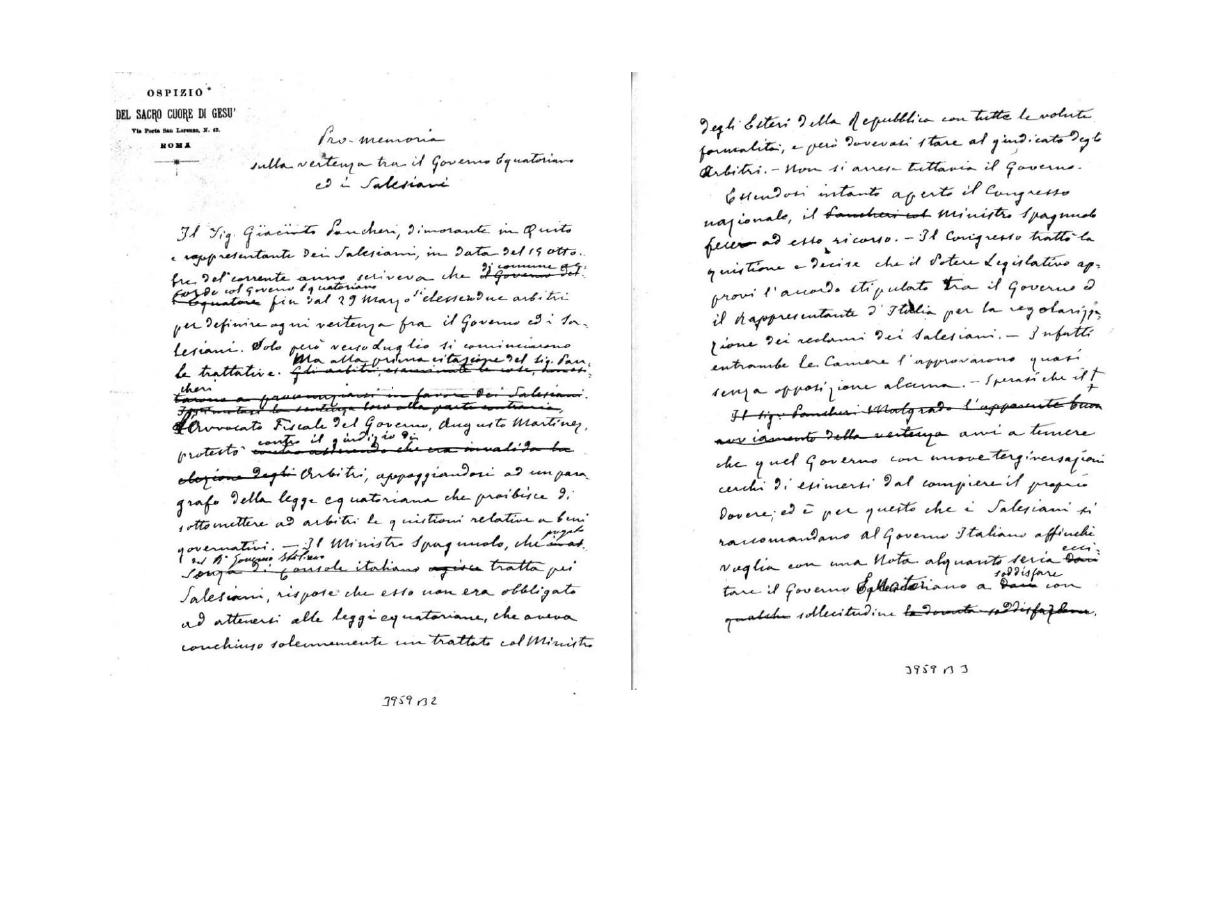 OSPIZIO
DEL SACRO CUORE DI GESU'
Via Porta San Lorenzo, N. 42.
ROMA
Pro-memoria
sulla vertenza tra il Governo Equatoriano
ed i Salesiani
Il Sig. Giacinto Pancheri, dimorante in Quito
e rappresentante dei Salesiani, in data del 19 otto-
bre del corrente anno scriveva che di comune ac-
il Governo del-
cordo col Governo Equatoriano
l'Equatore fin dal 29 Marzo si elessero due arbitri
per definire ogni vertenza fra il Governo ed i Sa-
lesiani. Solo però verso Luglio si cominciarono
Ma alla prima citazione del Sig. Pan-
le trattative. Gli arbitri, esaminate le cose,
cheri
a pronunziarsi in favore dei Salesiani.
la sentenza loro alla parte contraria,
l'Avvocato Fiscale del Governo, Augusto Martinez,
contro il giudizio di
protestò che era invalida la
elezione degli Arbitri, appoggiandosi ad un para
grafo della legge equatoriana che proibisce di
sottomettere ad arbitri le quistioni relative a beni
pregato
governativi. — Il Ministro Spagnuolo, che in as-
dal R° Governo Italiano
senza di Console italiano agisce tratta pei
Salesiani, rispose che esso non era obbligato
ad attenersi alle leggi equatoriane, che aveva
conchiuso solennemente un trattato col Ministro
3959 B 2
degli Esteri della Repubblica con tutte le volute
formalità, e però dovevasi stare al giudicato degli
Arbitri. — Non si arrese tuttavia il Governo.
Essendosi intanto aperto il Congresso
nazionale, il Pancheri col Ministro Spagnuolo
fecero ad esso ricorso. — Il Congresso trattò la
quistione e decise che il Potere Legislativo ap-
provi l'accordo stipulato tra il Governo ed
il Rappresentante d'Italia per la regolarizza-
zione dei reclami dei Salesiani. — Infatti
entrambe le Camere l'approvarono quasi
senza opposizione alcuna. — Sperasi che il
Il Sig. Pancheri Malgrado l'apparente buon
avviamento della vertenza avvi a temere
che quel Governo con nuove tergiversazioni
cerchi di esimersi dal compiere il proprio
dovere; ed è per questo che i Salesiani si
raccomandano al Governo Italiano affinchè
voglia con una Nota alquanto seria ecci-
soddisfare
tare il Governo Equatoriano a dare con
qualche sollecitudine la dovuta soddisfazione.
3959 B 3